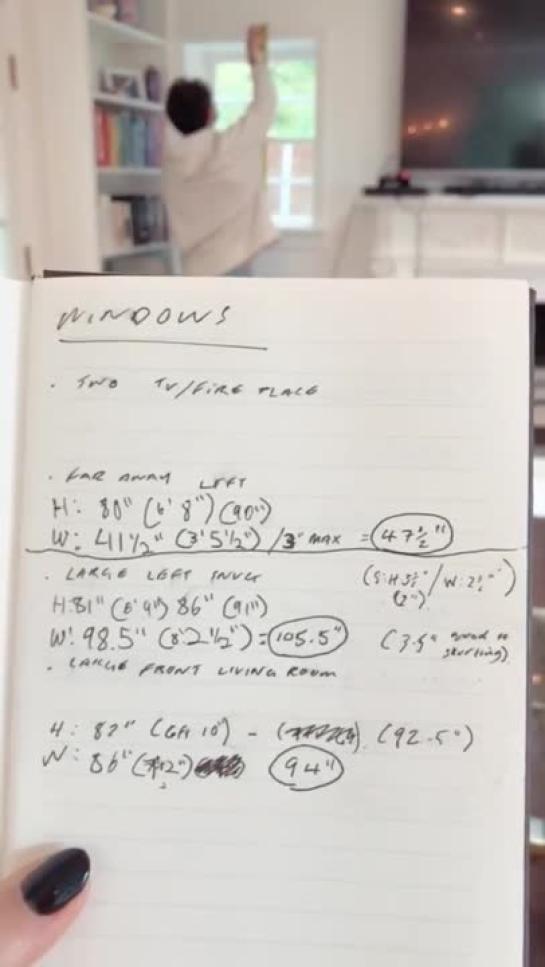 WINDOWS
. TWO TV/FIRE PLACE
. FAR AWAY LEFT
H: 80" (6' 8") (90")
W: 41 1/2" (3' 5 1/2") /3" MAX = 47 1/2"
. LARGE LEFT
H: 81" (6' 9") 86" (91")
W: 98.5" (8' 2 1/2") = 105.5" (3.5"
. LARGE FRONT LIVING ROOM
H: 82" (6ft 10") - (92.5")
W: 86" 94"